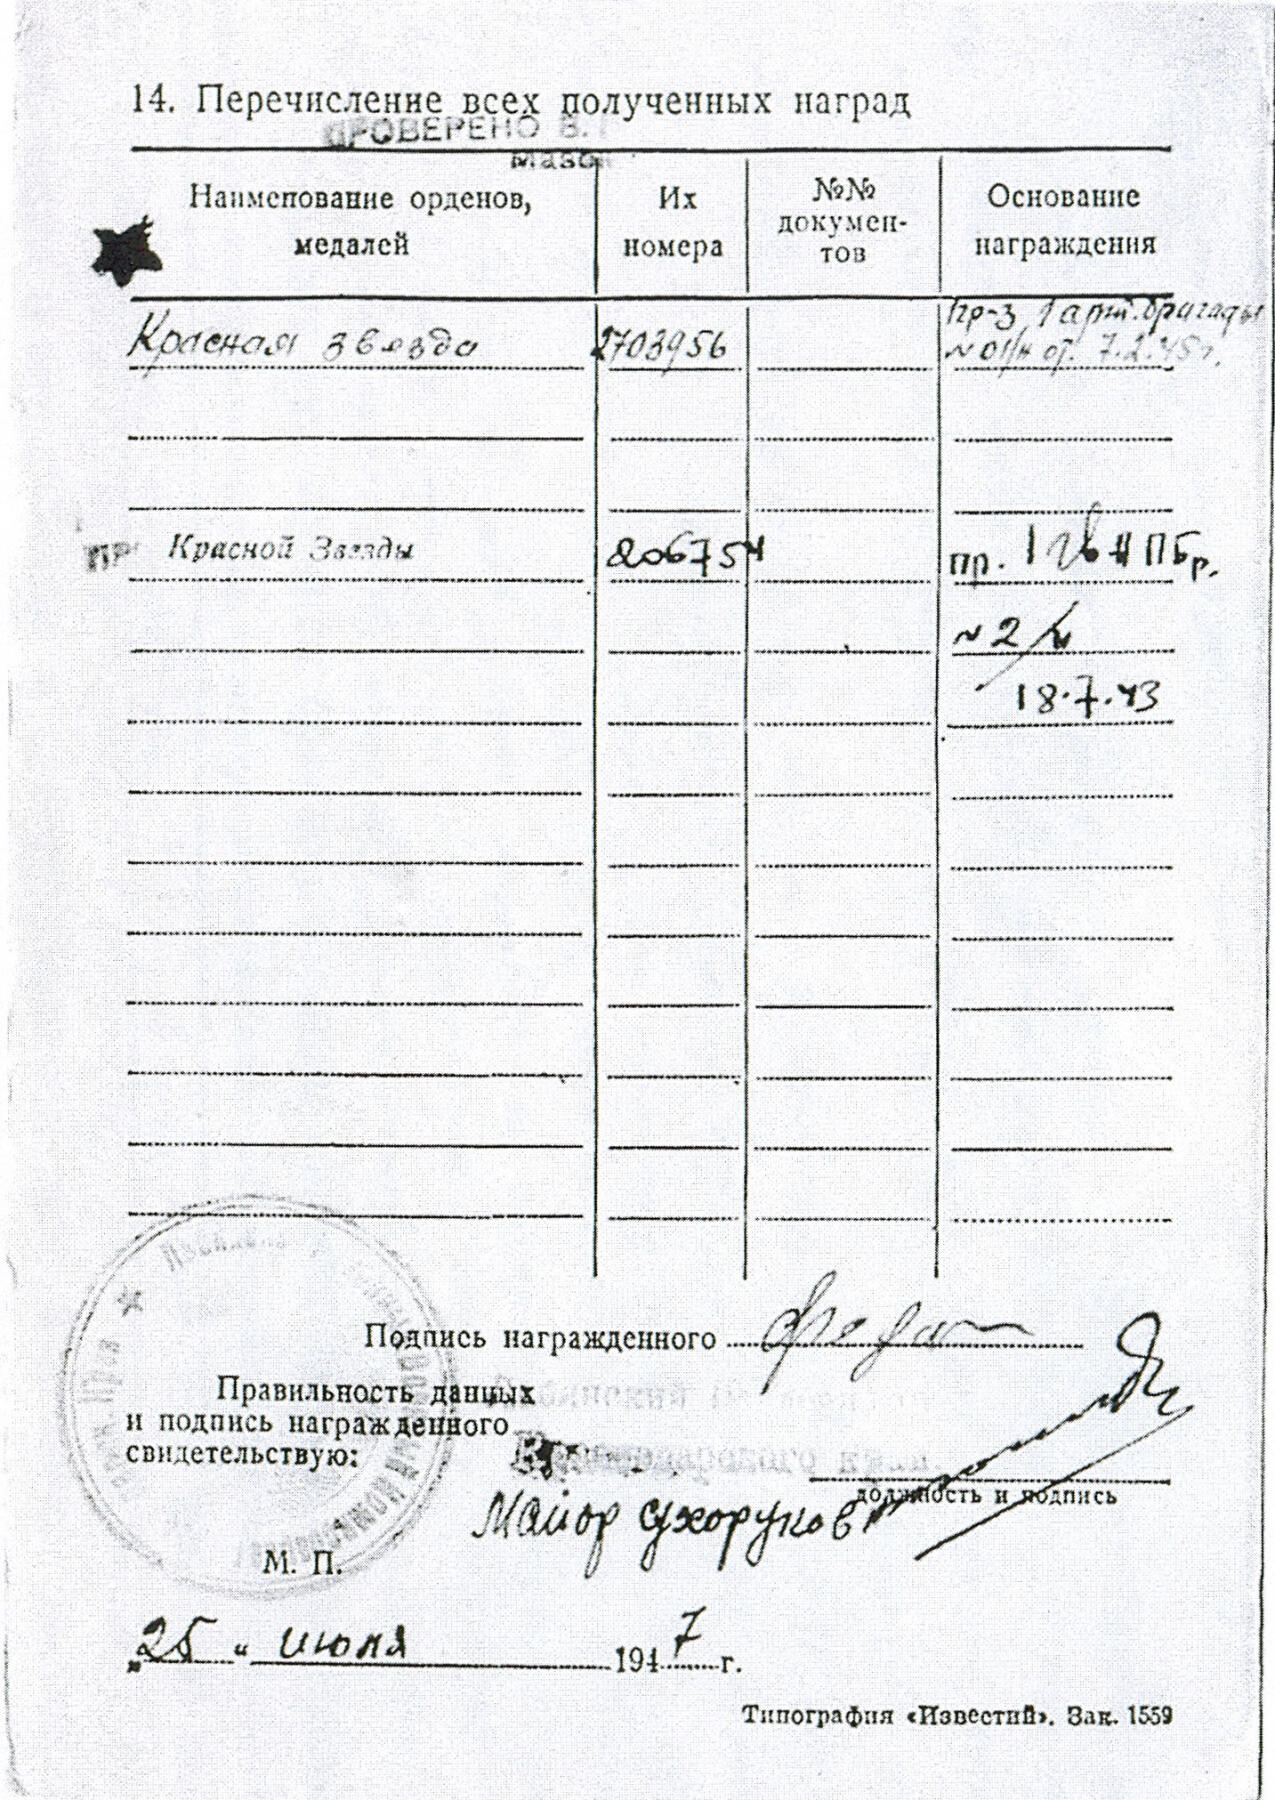 14. Перечисление всех полученных наград
ПРОВЕРЕНО В.
Наименование орденов, медалей
Их номера
№№ докумен-
тов
Основание награждения
Красная звезда 2703956 Пр-з 1 арт.бригады
№ 01/н от. 7.2.45г.
Красной Звезды 206754 пр. 1 гв ПБр.
№ 2/н
18.7.43
Подпись награжденного
Правильность данных
и подпись награжденного
свидетельствую:
должность и подпись
Майор Сухоруков
М. П.
„25" июля 1947 г.
Типография «Известий». Зак. 1559